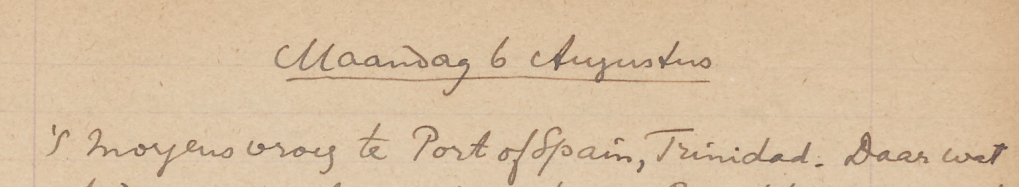 Maandag 6 Augustus
's morgens vroeg te Port of Spain, Trinidad. Daar wat